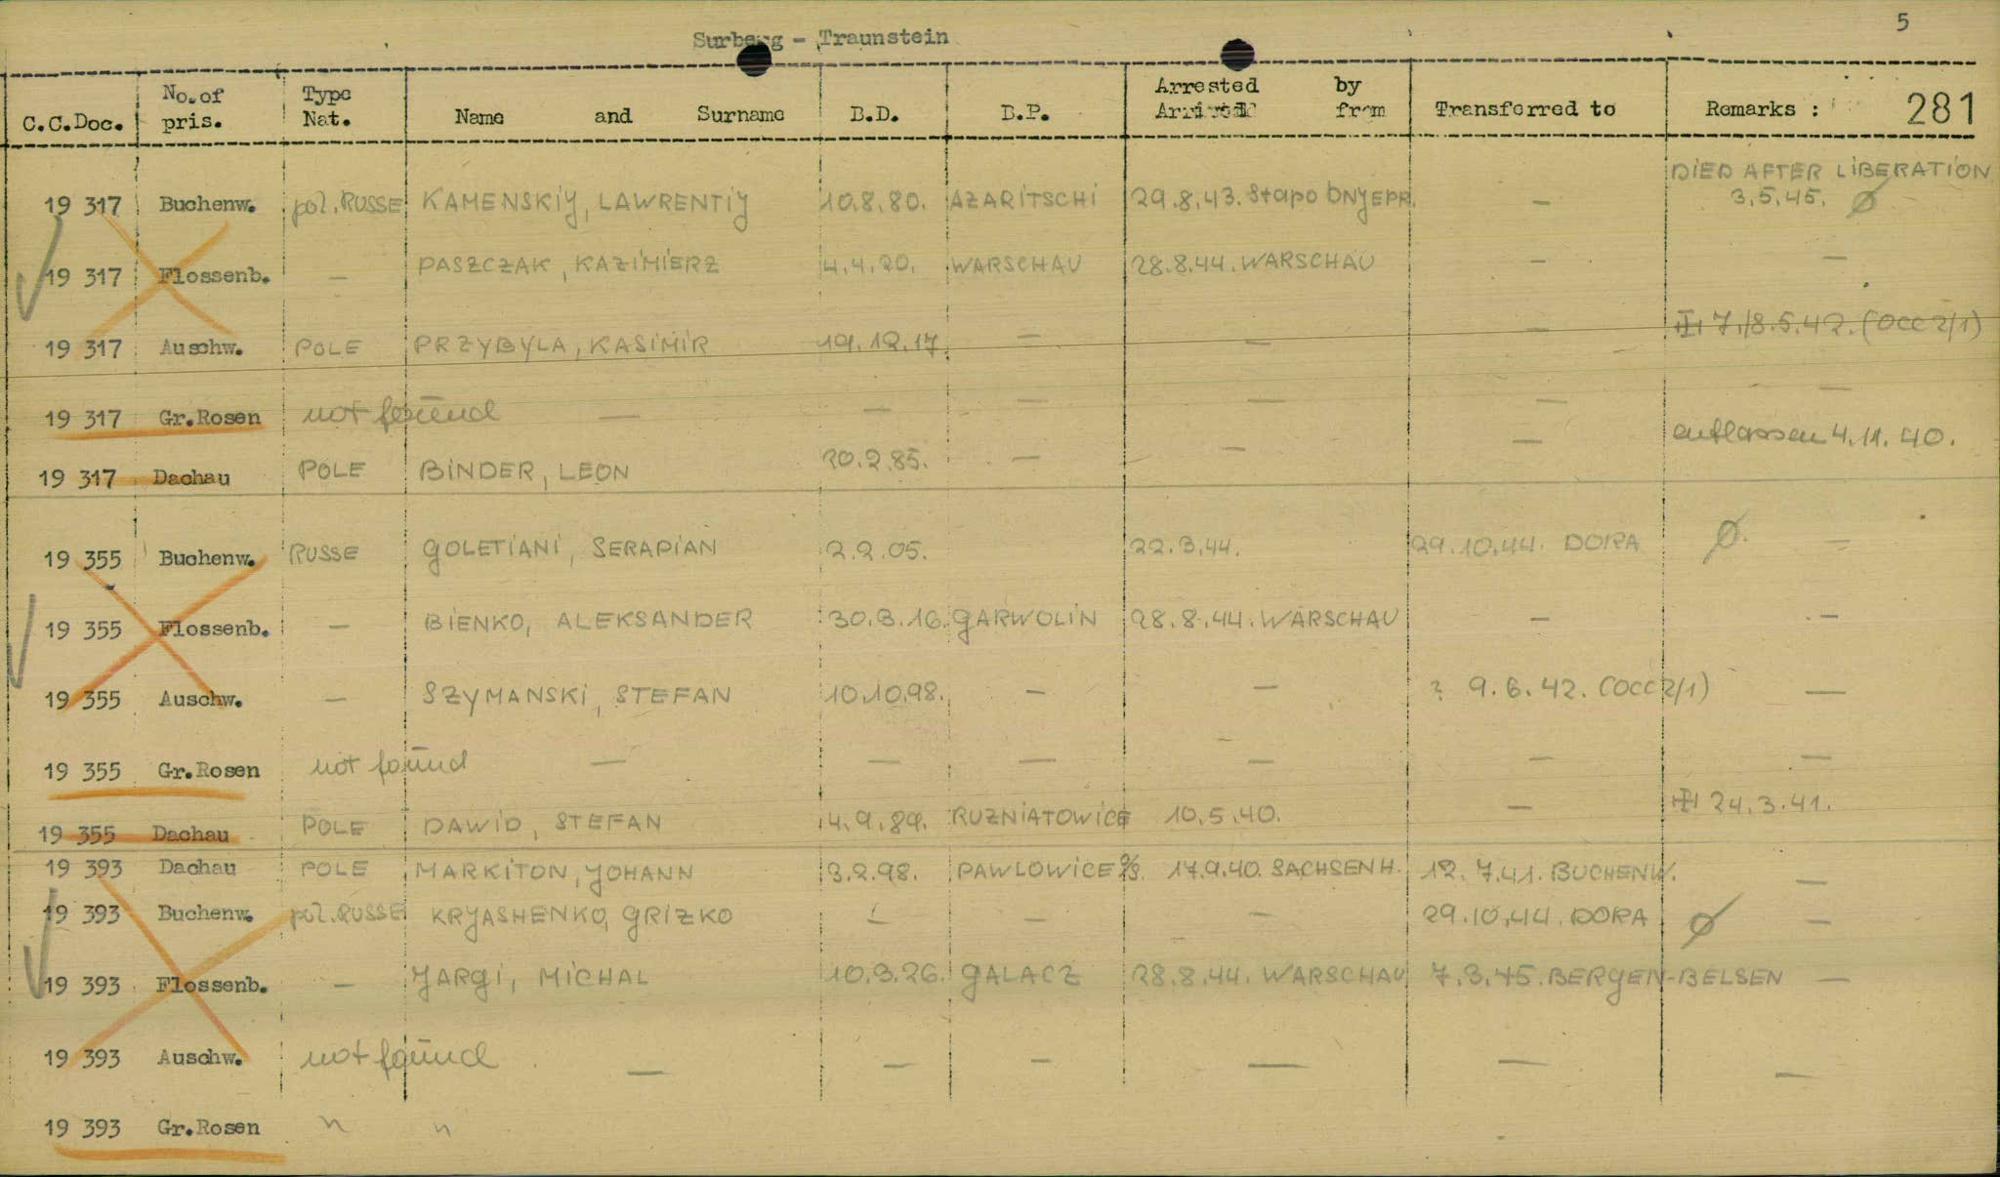 5
Surberg - Traunstein
C.C.Doc. No. of pris. Type Nat. Name and Surname B.D. B.P. Arrested by Arrived from Transferred to Remarks : 281
19 317 Buchenw. pol. RUSSE KAMENSKIY, LAWRENTIY 10.8.80. AZARITSCHI 29.8.43. Stapo DNYEPR. — DIED AFTER LIBERATION 3.5.45. Ø
19 317 Flossenb. — PASZCZAK, KAZIMIERZ 4.4.20. WARSCHAU 28.8.44. WARSCHAU — —
19 317 Auschw. POLE PRZYBYLA, KASIMIR 19.12.17. — — — 7./8.5.42. (OCC 2/1)
19 317 Gr.Rosen not found — — — — — —
19 317 Dachau POLE BINDER, LEON 20.2.85. — — — entlassen 4.11.40.
19 355 Buchenw. RUSSE GOLETIANI, SERAPIAN 2.2.05. 22.3.44. 29.10.44. DORA Ø. —
19 355 Flossenb. — BIENKO, ALEKSANDER 30.3.16. GARWOLIN 28.8.44. WARSCHAU — —
19 355 Auschw. — SZYMANSKI, STEFAN 10.10.98. — — ? 9.6.42. (OCC 2/1) —
19 355 Gr.Rosen not found — — — — — —
19 355 Dachau POLE DAWID, STEFAN 4.9.89. RUZNIATOWICE 10.5.40. — 24.3.41.
19 393 Dachau POLE MARKITON, JOHANN 3.2.98. PAWLOWICE O/S. 17.9.40. SACHSENH. 12.7.41. BUCHENW. —
19 393 Buchenw. pol. RUSSE KRYASHENKO, GRIZKO — — — 29.10.44. DORA Ø —
19 393 Flossenb. — JARGI, MICHAL 10.3.26. GALACZ 28.8.44. WARSCHAU 7.3.45. BERGEN-BELSEN —
19 393 Auschw. not found — — — — — —
19 393 Gr.Rosen " "